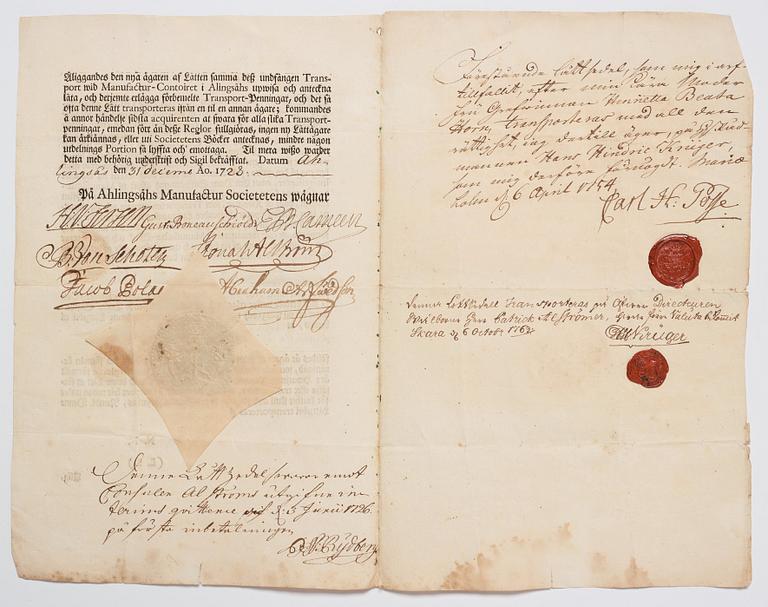 Åliggandes den nya ägaren af Lätten samma deß undfängen Trans-
port wid Manufactur-Contoiret i Alingsåhs upwisa och anteckna
låta, och derjemte erlägga förbemelte Transport-Penningar, och det så
ofta denne Lätt transporteras ifrån en til en annan ägare; kommandes
å annor händelse sidsta acquirenten at swara för alla slika Transport-
penningar, emedan förr än deße Reglor fullgiöras, ingen ny Lättägare
kan ärkännas, eller uti Societetens Böcker antecknas, mindre någon
utdelnings Portion få lyffta och emottaga. Til mera wißo warder
detta med behörig underskrift och Sigil bekräfftat. Datum Ah-
lingsåhs den 31 decemb Ao. 1728.
På Ahlingsåhs Manufactur Societetens wägnar
B. von Scholtz Jonas Alström
Jacob Bolas Abraham
Denne Lått Zedel swarar emot
Consulen Alströms utgifne in-
terims qvittence d: 3 Junii 1726.
på första inbetalningen
Rydberg
Förestående Lättsedel, som mig i arf-
tillfallit, efter min Kära Moder
Fru Grefwinnan Henrietta Beata
Horn, transporteras med all den
rättighet, jag dertill äger, på
mannen Hans Hindric Krüger,
som mig derföre förnögdt. Marie-
holm d 6 April 1754.
Carl H: Posse
Denne Lottsedell transporteras på Directeuren
Wälborne Herr Patrick Alströmer, Valuta
Skara d 6 Octobr 1762.
Krüger